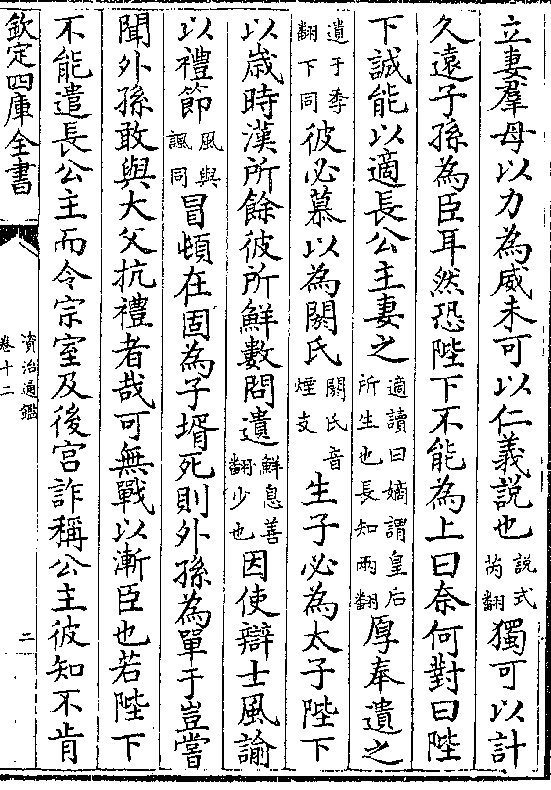 立妻羣母以力為威未可以仁義說也說式芮翻獨可以計
久遠子孫為臣耳然恐陛下不能為上曰奈何對曰陛
下誠能以適長公主妻之適讀曰嫡謂皇后所生也長知兩翻厚奉遺之
遺于季翻下同彼必慕以為閼氏閼氏音煙支生子必為太子陛下
以歲時漢所餘彼所鮮數問遺鮮息善翻少也因使辯士風諭
以禮節風與諷同冒頓在固為子壻死則外孫為單于豈嘗
聞外孫敢與大父抗禮者哉可無戰以漸臣也若陛下
不能遣長公主而令宗室及後宮詐稱公主彼知不肯
欽定四庫全書
資治通鑑
卷十二
二